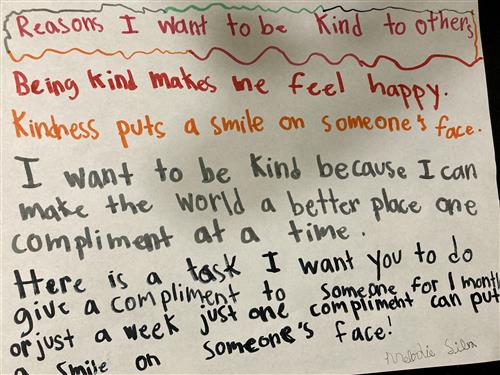 Reasons I want to be Kind to others
Being kind makes me feel happy.
Kindness puts a smile on someone's face.
I want to be Kind because I can
make the world a better place one
compliment at a time.
Here is a task I want you to do
give a compliment to someone for 1 month
or just a week just one compliment can put
a smile on someone's face!